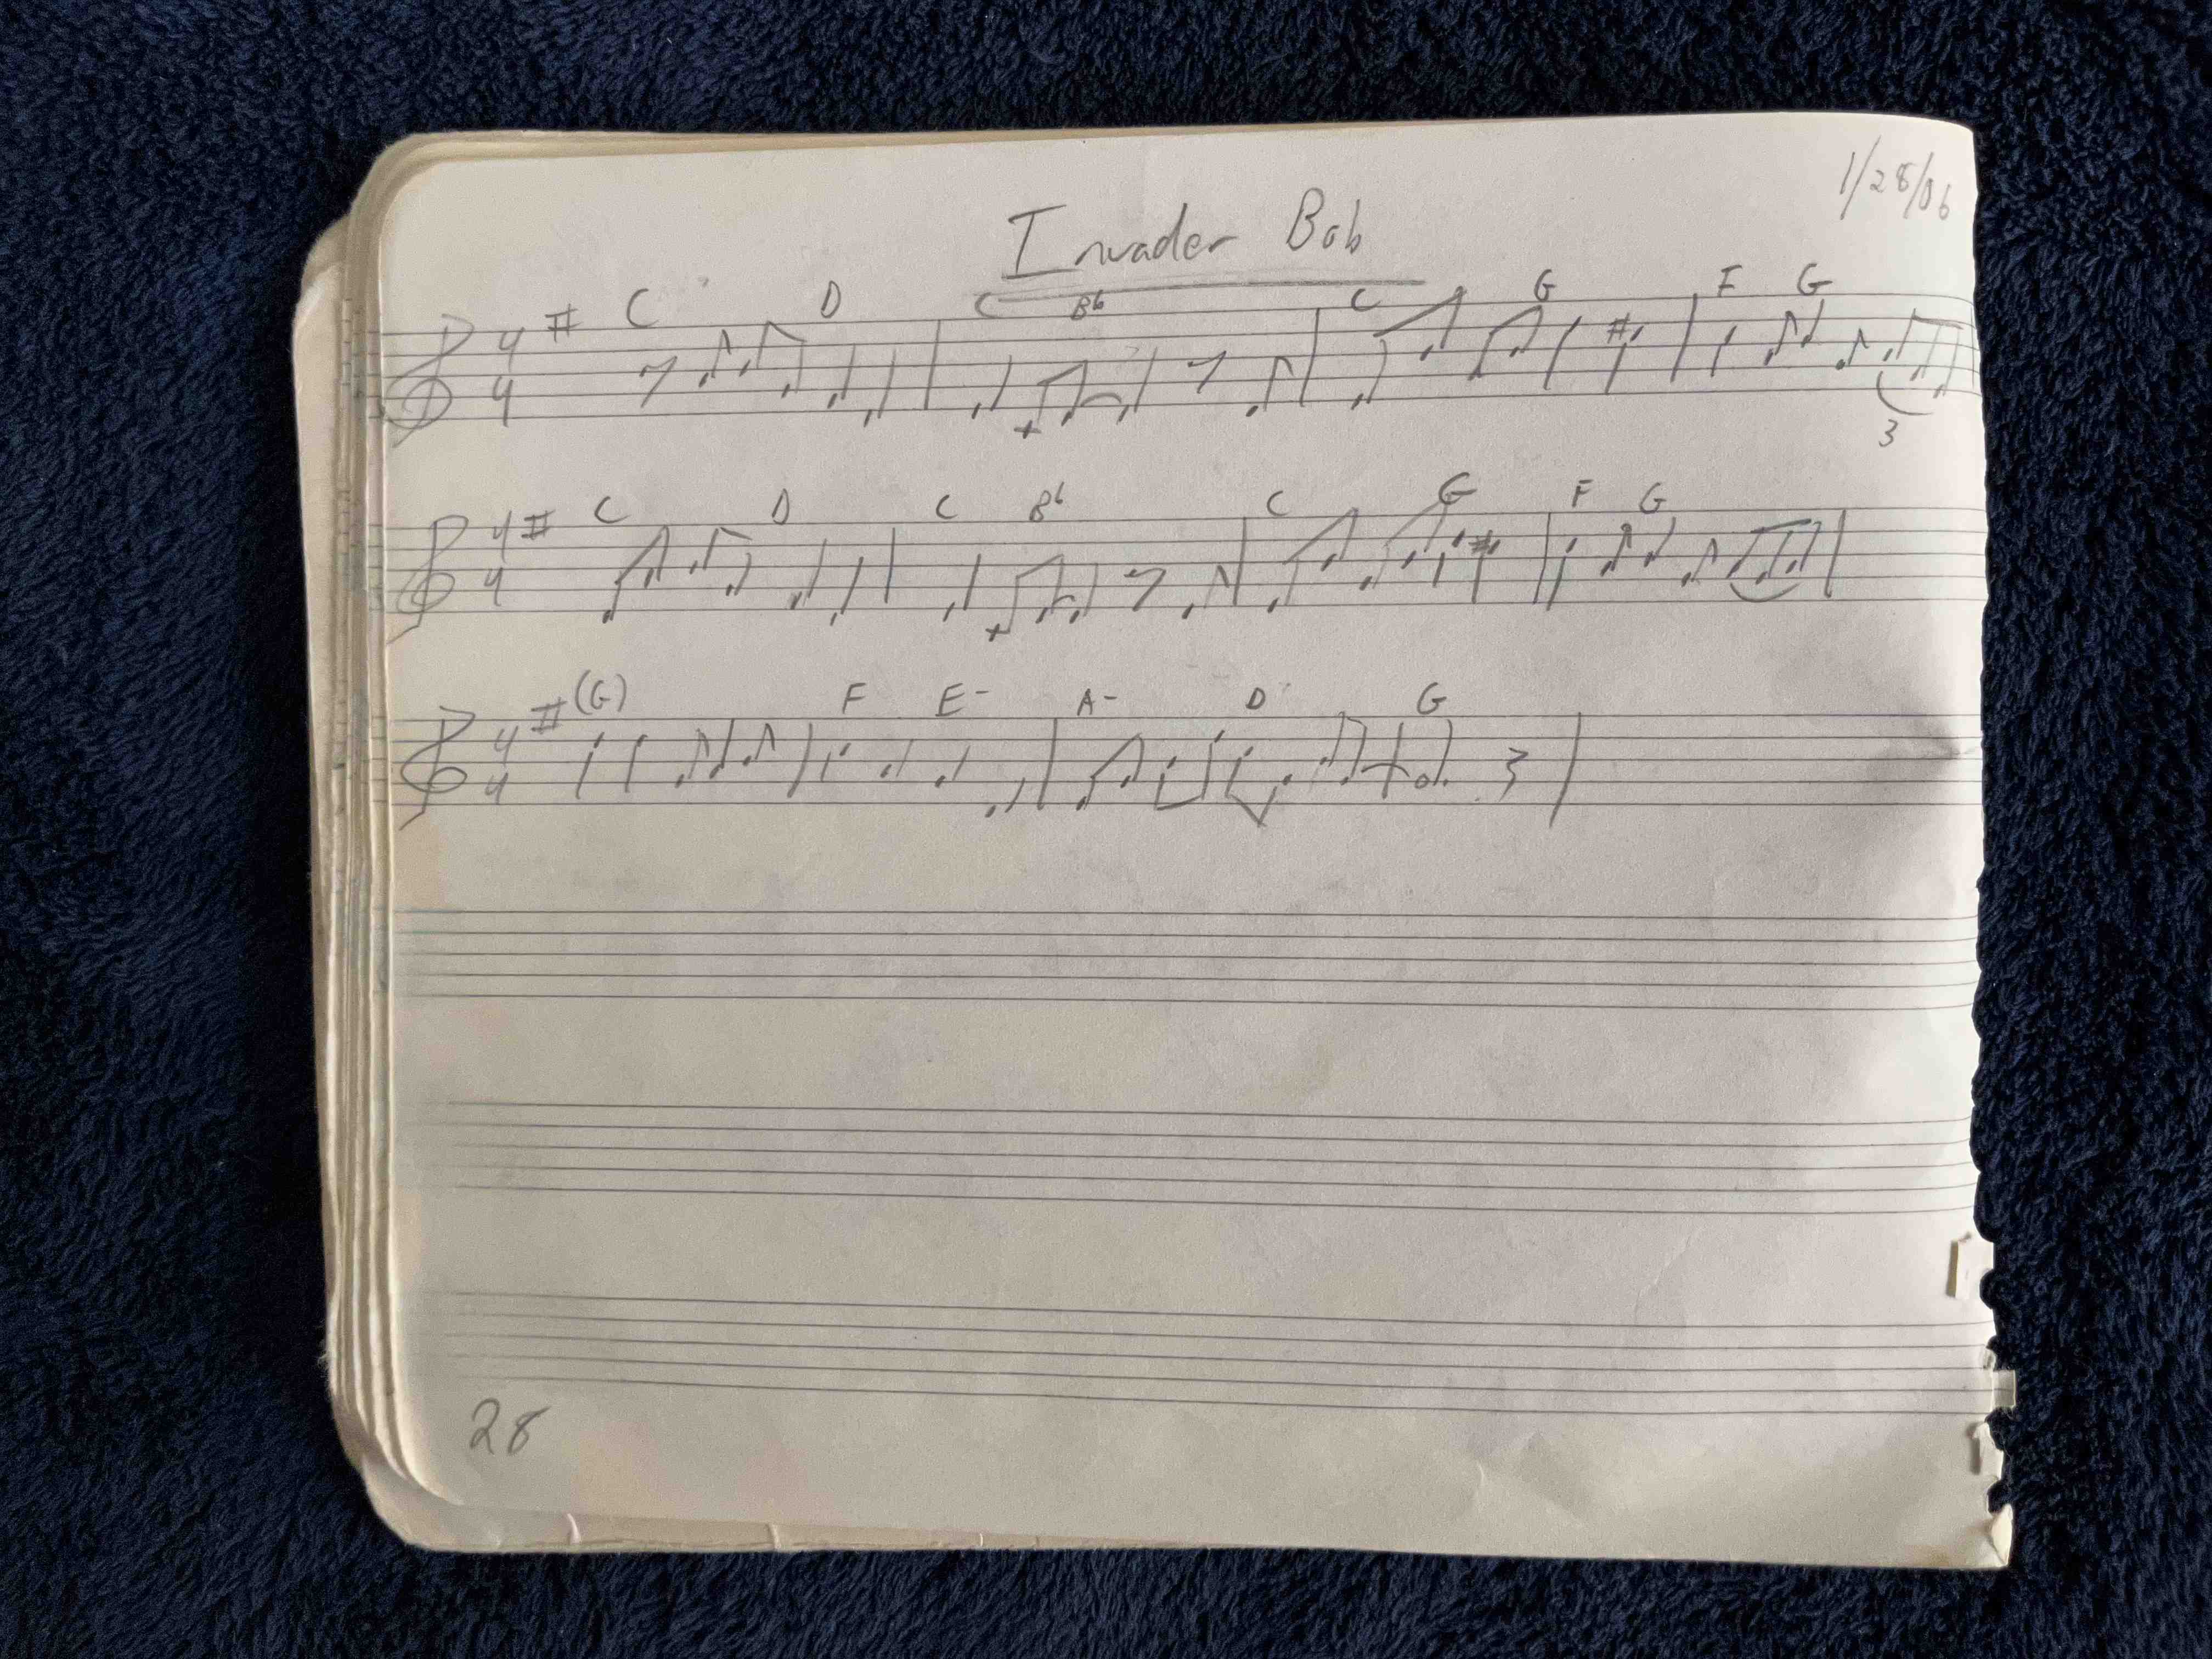 1/28/06
Invader Bob
C D C Bb C G F G
4
4
3
C D C Bb C G F G
4
4
(G) F E- A- D G
4
4
28